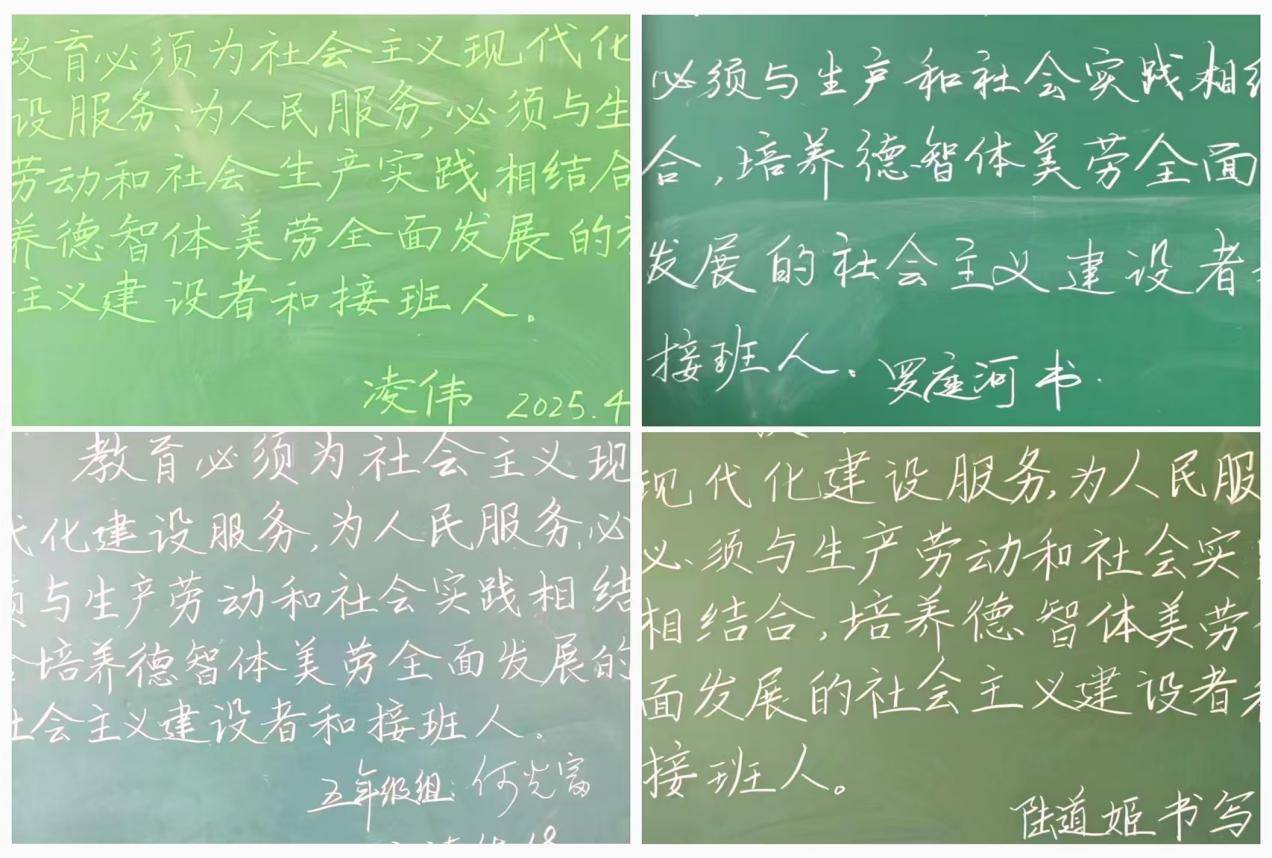 教育必须为社会主义现代化
设服务、为人民服务,必须与生
劳动和社会生产实践相结合
养德智体美劳全面发展的
主义建设者和接班人。
凌伟 2025.4
必须与生产和社会实践相结
合,培养德智体美劳全面
发展的社会主义建设者
接班人。罗座河书.
教育必须为社会主义现
代化建设服务,为人民服务,必
须与生产劳动和社会实践相结
培养德智体美劳全面发展的
社会主义建设者和接班人。
五年级组:何光富
现代化建设服务,为人民服
必须与生产劳动和社会实
相结合,培养德智体美劳
面发展的社会主义建设者
接班人。
陆道姬书写